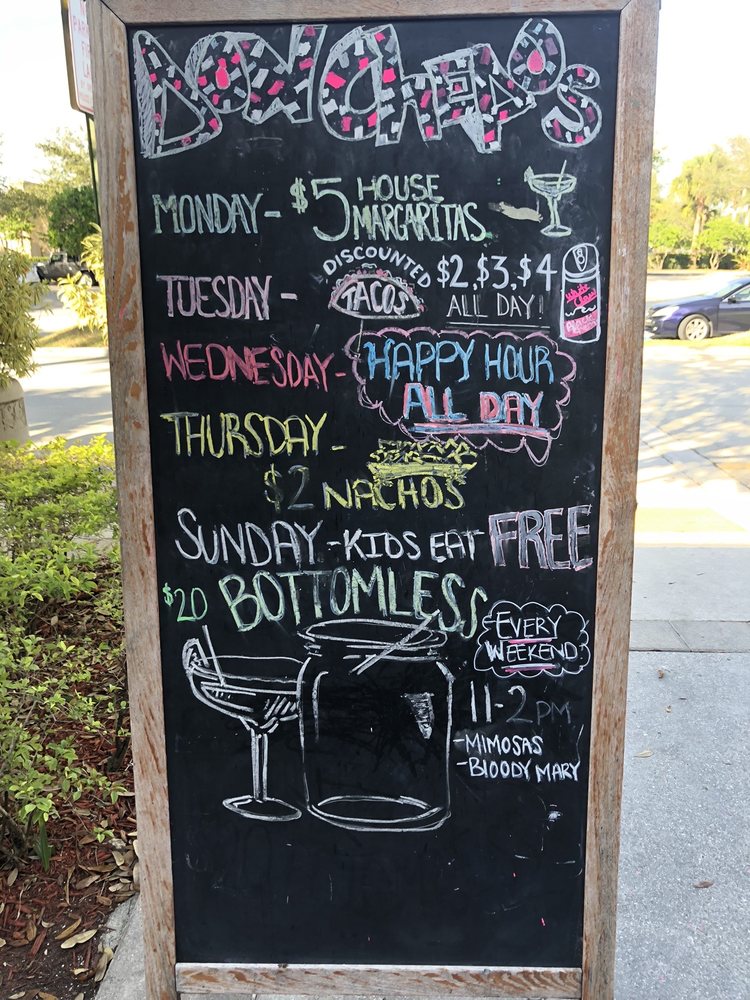 DON CHEPO'S
MONDAY - $5 HOUSE MARGARITAS
TUESDAY - DISCOUNTED TACOS $2, $3, $4 ALL DAY!
White Claw
WEDNESDAY - HAPPY HOUR ALL DAY
THURSDAY -
$2 NACHOS
SUNDAY - KIDS EAT FREE
$20 BOTTOMLESS
EVERY WEEKEND
11-2PM
-MIMOSAS
-BLOODY MARY